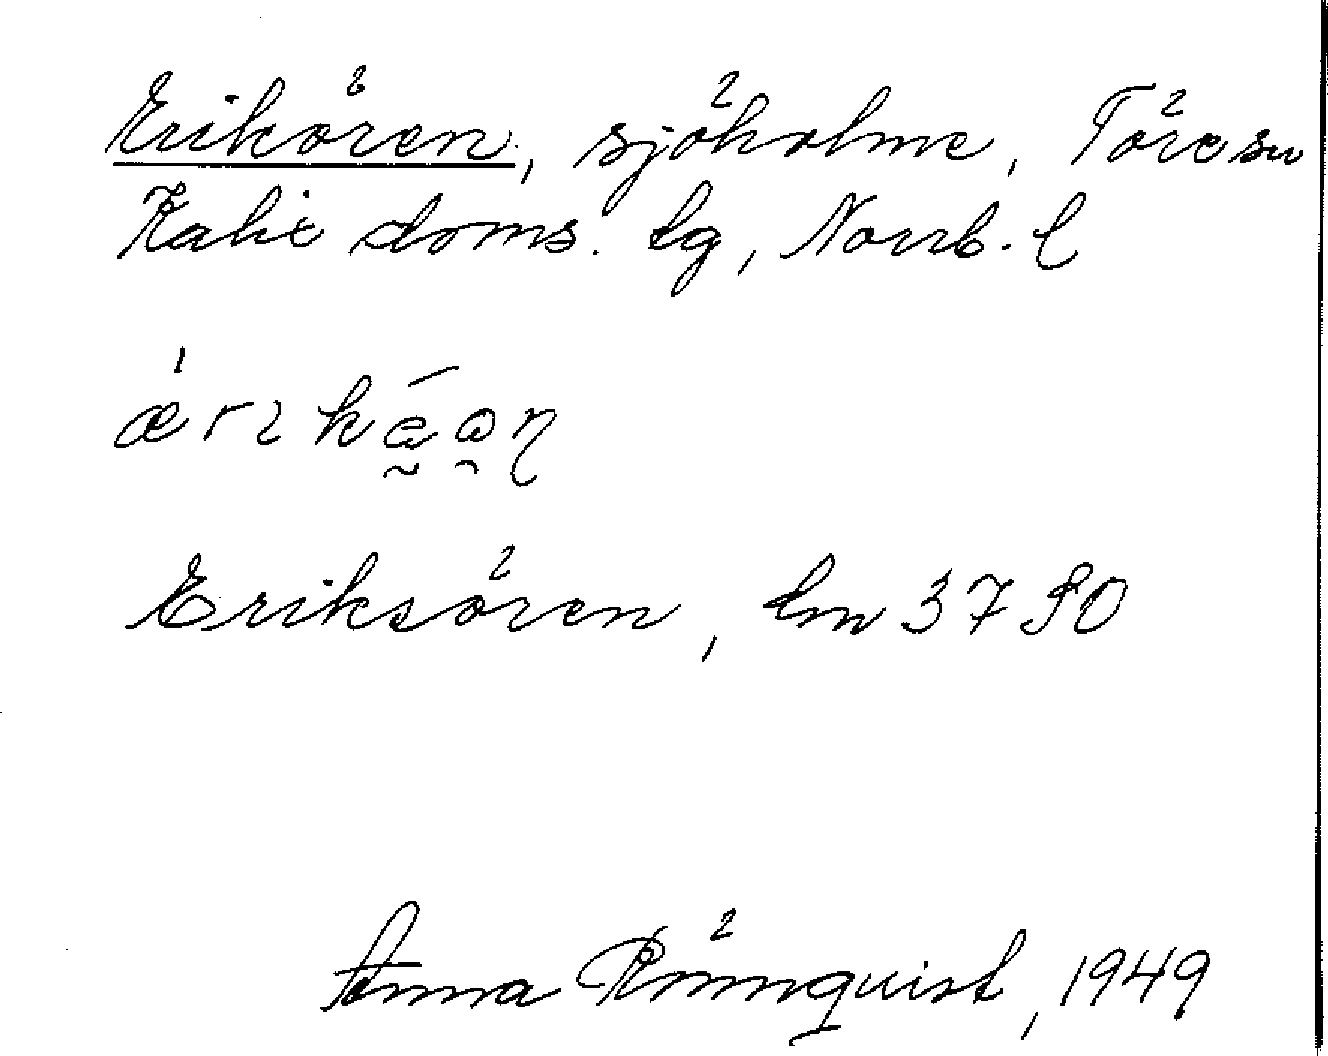 Eriköran, sjöholme, Töre sn
Kalix doms. tg, Norrb. l
Eriksören, lm 3790
Anna Rönnquist, 1949